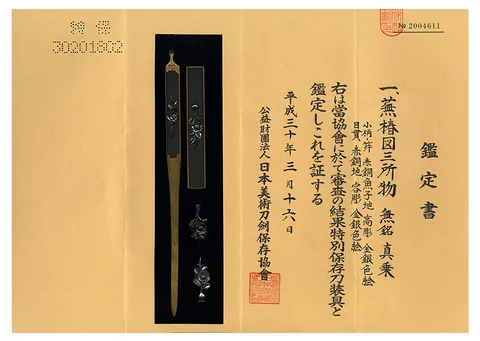 特保
30201802
№ 2004611
鑑定書
一、蕪椿図三所物 無銘 真乗
小柄・笄 赤銅魚子地 高彫 金銀色絵
目貫 赤銅地 容彫 金銀色絵
右は當協會に於て審査の結果特別保存刀装具と
鑑定しこれを証する
平成三十年三月十六日
公益財團法人日本美術刀劍保存協會